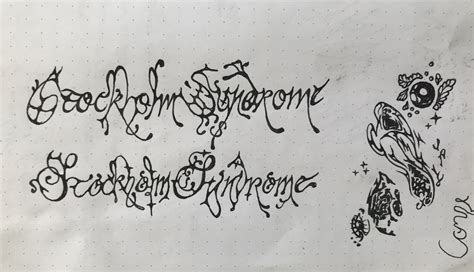 Stockholm Syndrome
Stockholm Syndrome